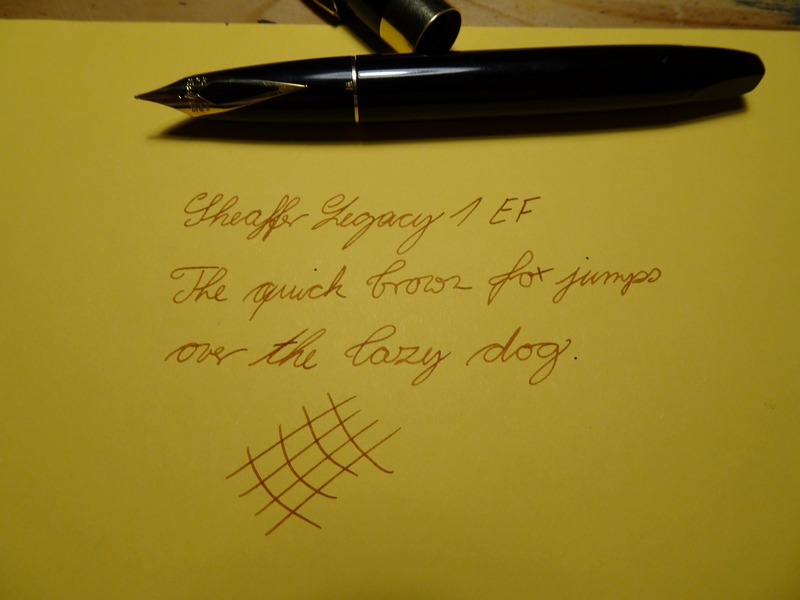 Sheaffer Legacy 1 EF
The quick brown fox jumps
over the lazy dog.